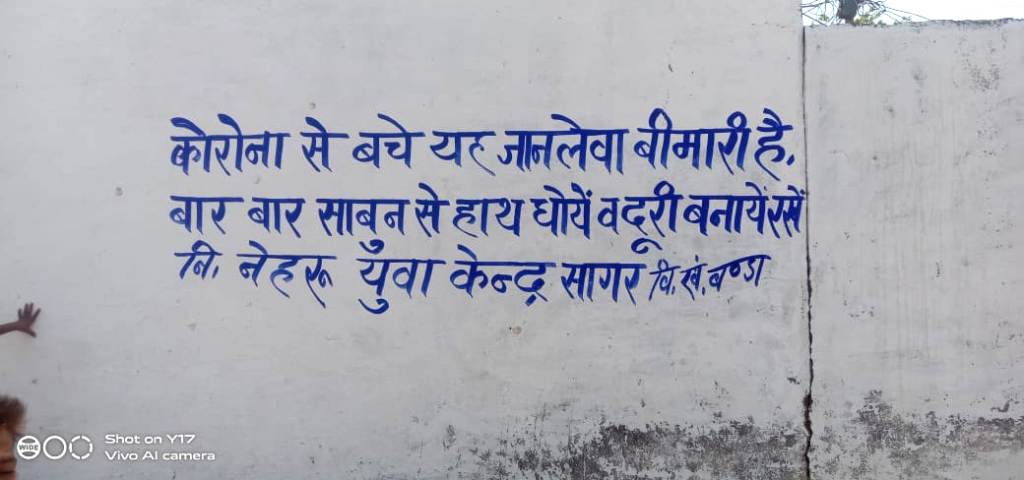 कोरोना से बचे यह जानलेवा बीमारी है.
बार बार साबुन से हाथ धोयें व दूरी बनायें रखें
नि. नेहरू युवा केन्द्र सागर वि.खं. बण्डा
WIDE
Shot on Y17
Vivo AI camera